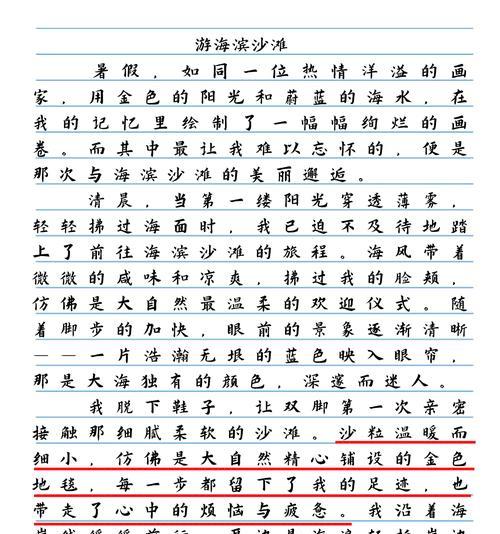 游海滨沙滩
暑假，如同一位热情洋溢的画
家，用金色的阳光和蔚蓝的海水，在
我的记忆里绘制了一幅幅绚烂的画
卷。而其中最让我难以忘怀的，便是
那次与海滨沙滩的美丽邂逅。
清晨，当第一缕阳光穿透薄雾，
轻轻拂过海面时，我已迫不及待地踏
上了前往海滨沙滩的旅程。海风带着
微微的咸味和凉爽，拂过我的脸颊，
仿佛是大自然最温柔的欢迎仪式。随
着脚步的加快，眼前的景象逐渐清晰
——一片浩瀚无垠的蓝色映入眼帘，
那是大海独有的颜色，深邃而迷人。
我脱下鞋子，让双脚第一次亲密
接触那细腻柔软的沙滩。沙粒温暖而
细小，仿佛是大自然精心铺设的金色
地毯，每一步都留下了我的足迹，也
带走了心中的烦恼与疲惫。我沿着海